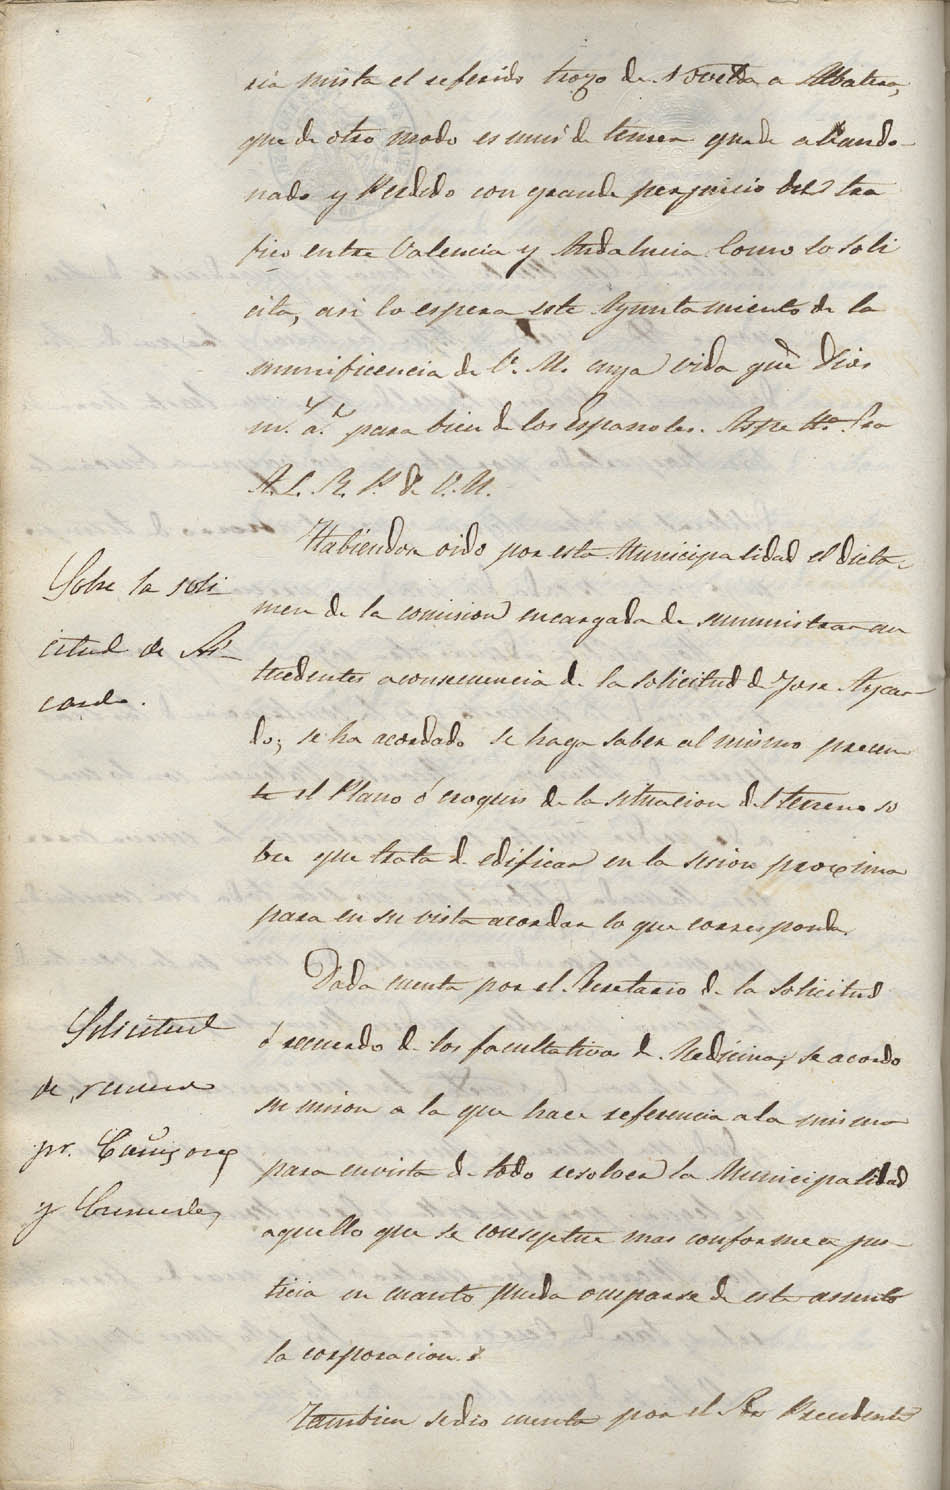 ria mista el referido trozo de Novelda a Albatera,
que de otro modo es muy de temer quede abando-
nado y Perdido con grande perjuicio del tra
fico entre Valencia y Andalucia Como lo soli
cita, asi lo espera este Ayuntamiento de la
munificencia de V. M. cuya vida gue Dios
m.s a.s para bien de los Españoles. Aspe
A. L. R. P. de V. M.
Habiendose oido por esta Municipalidad el dicta-
men de la comision encargada de suministrar an
tecedentes a consecuencia de la solicitud de Jose Azcar-
do; se ha acordado se haga saber al mismo presen
te el Plano ó croquis de la situacion del terreno so
bre que trata de edificar en la sesion proxima
para en su vista acordar lo que corresponda.
Sobre la soli
citud de
cardo.
Dada cuenta por el Secretario de la Solicitud
ó recuerdo de los facultativos de Medicina; se acordo
su union a la que hace referencia a la misma
para en vista de todo resolver la Municipalidad
aquello que se conseptue mas conforme a jus-
ticia en cuanto pueda ocuparse de este asunto
la corporacion.
Solicitud
de
pr.
y
Tambien se dio cuenta por el Sor Presidente